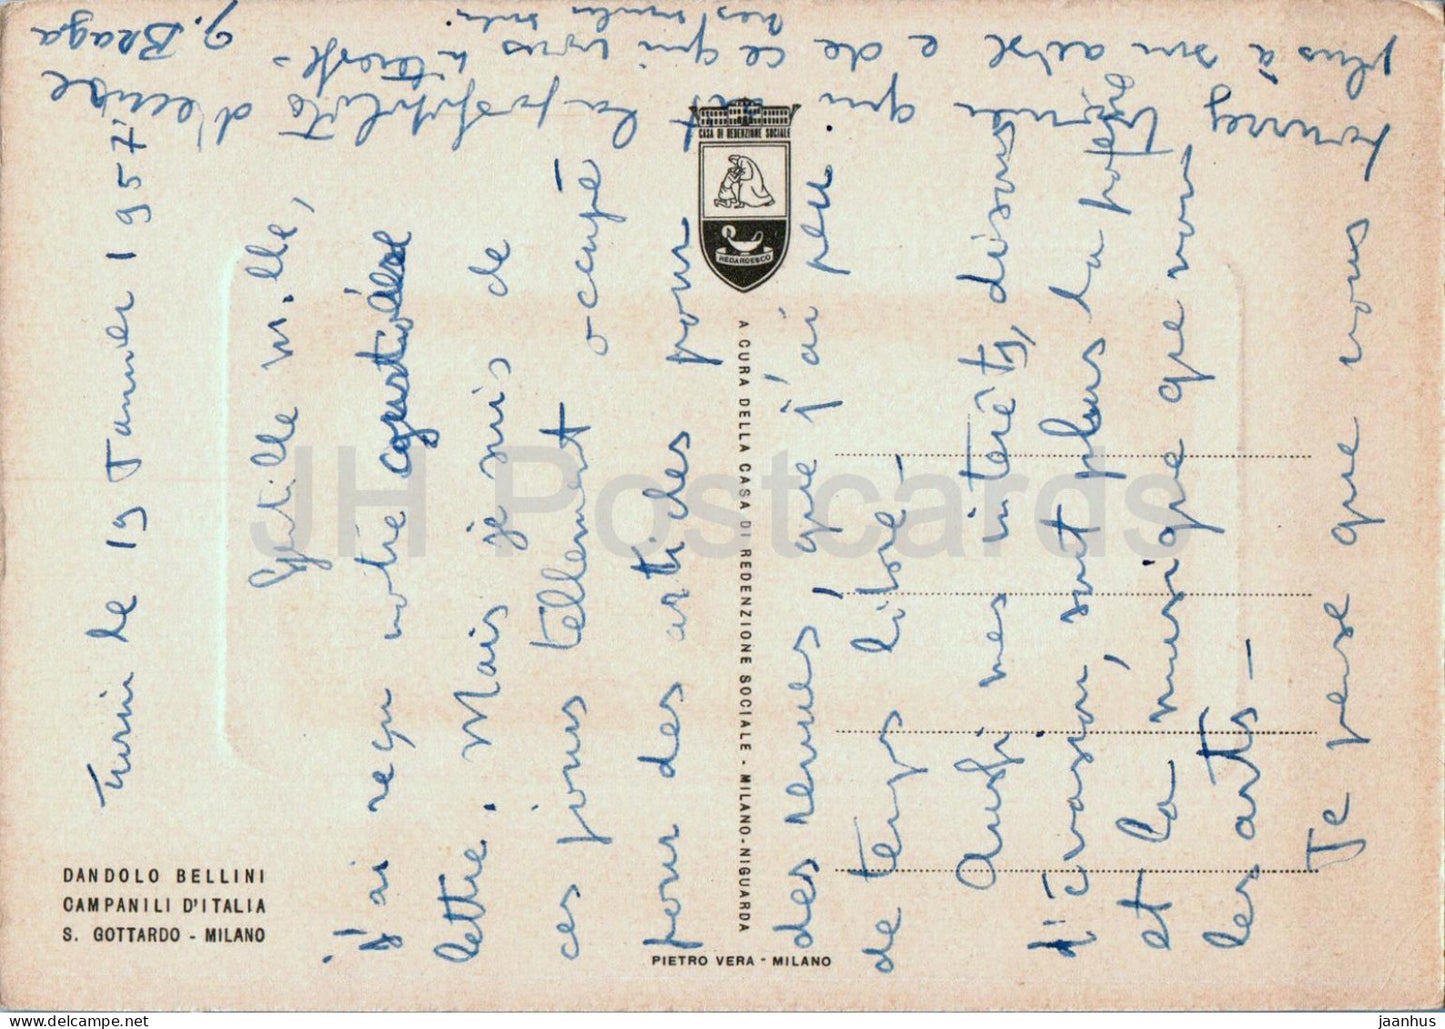 Turin le 19 Janvier 1957
Gentille Mlle,
j'ai reçu votre
lettre. Mais je suis de
ces jours tellement occupé
pour des articles pour
des revues, que j'ai peu
de temps libre -
Aussi mes intérêts, disons
d'évasion, sont plus la poésie
et la musique que non
les arts -
Je pense que vous
pourrez
qui la possibilité d'écrire
plus à son aise e de ce qui vous intéresse -
G. Braga
CASA DI REDENZIONE SOCIALE
REDARDESCO
A CURA DELLA CASA DI REDENZIONE SOCIALE - MILANO-NIGUARDA
DANDOLO BELLINI
CAMPANILI D'ITALIA
S. GOTTARDO - MILANO
PIETRO VERA - MILANO
JH Postcards
https://www.jhpostcards.com
jaanhus